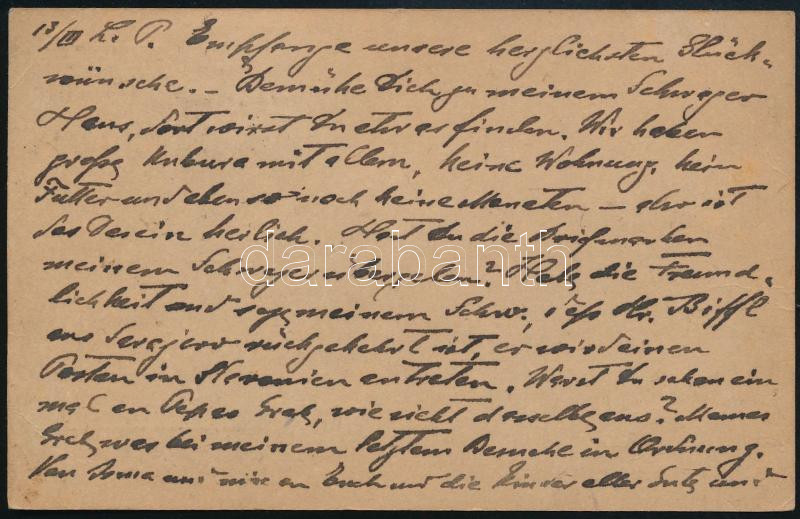 13/III L. P. Empfange unsere herzlichsten Glück-
wünsche. – Bemühe Dich zu meinem Schwager
Hans, dort wirst Du etwas finden. Wir haben
große Kubura mit allem, keine Wohnung, kein
Futter und ebenso noch keine Moneten – aber ist
das Dasein herrlich. Hast Du die Briefmarken
meinem Schwager übergeben? Habe die Freund-
lichkeit und sage meinem Schw., daß Hr. Biffl
aus Sarajevo rückgekehrt ist, er wird einen
Posten in Slavonien antreten. Warst Du schon ein
mal an Papas Grab, wie sieht dasselbe aus? Mamas
Grab war bei meinem letzten Besuche in Ordnung.
Von Irma und mir an Euch und die Kinder alles Gute und
darabanth